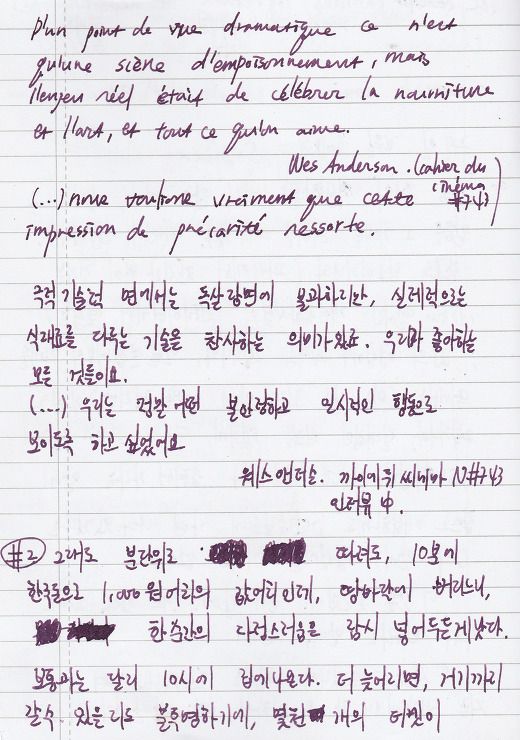 D'un point de vue dramatique ce n'est
qu'une scène d'empoisonnement, mais
l'enjeu réel était de célébrer la nourriture
et l'art, et tout ce qu'on aime.
Wes Anderson. (cahier du
cinéma
#743)
(...) nous voulions vraiment que cette
impression de précarité ressorte.
극적 기술적 면에서는 독살장면에 불과하지만, 실제적으로는
식재료를 다루는 기술을 찬사하는 의미가 있죠. 우리가 좋아하는
모든 것들이요.
(...) 우리는 정말 어떤 불안정하고 일시적인 행동으로
보이도록 하고 싶었어요
웨스앤더슨. 까이에 뒤 씨네마 N#743
인터뷰 中.
#2 그래도 분단위로 따져도, 10분에
한국돈으로 1,000원 어리의 값어치인데, 땅바닥에 버리느니,
한순간의 다정스러움은 잠시 넣어두는게 낫다.
보통과는 달리 10시에 집에 나온다. 더 늦어지면, 거기까지
갈수 있을지도 불투명하기에, 몇천 개의 터빗이